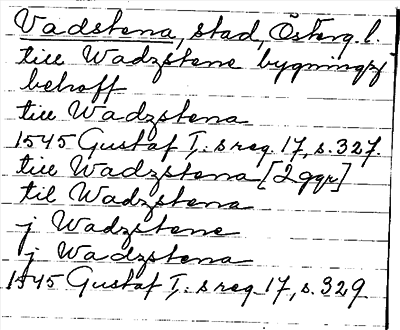 Vadstena, stad, Österg. l.
till Wadzstene bygningz
behoff
till Wadzstena
1545 Gustaf I:s reg. 17, s. 327.
till Wadzstena [2 ggr]
til Wadzstena
j Wadzstene
j Wadzstena
1545 Gustaf I:s reg. 17, s. 329